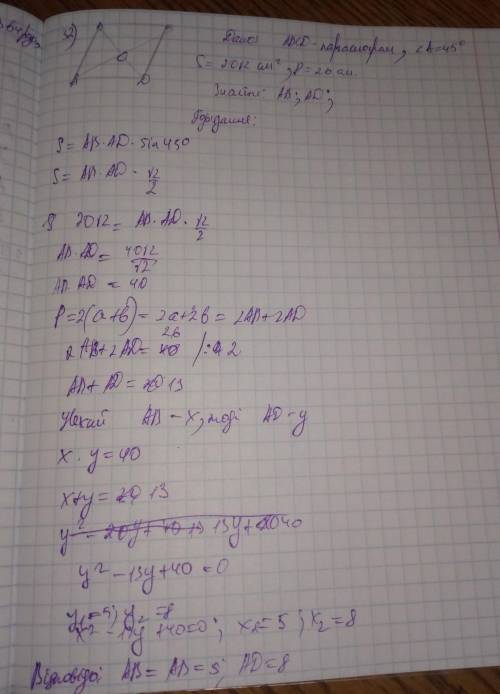 2)
Дано: ABCD - паралелограм, ∠A=45°
S = 20√2 см², P = 26 см.
Знайти: AB; AD;
S = AB · AD · sin 450
S = AB · AD · √2/2
20√2 = AB · AD · √2/2
AB · AD = 40√2/√2
AB · AD = 40
P = 2(a+b) = 2a+2b = 2AB+2AD
2AB+2AD = 26 /: 2
AB + AD = 13
Нехай AB - x, тоді AD - y
x · y = 40
x+y = 13
y² - 13y + 40 = 0
y₁ = 5; y₂ = 8
x² - 13y + 40 = 0; x₁ = 5; x₂ = 8
Відповідь: AB = AB = 5; AD = 8